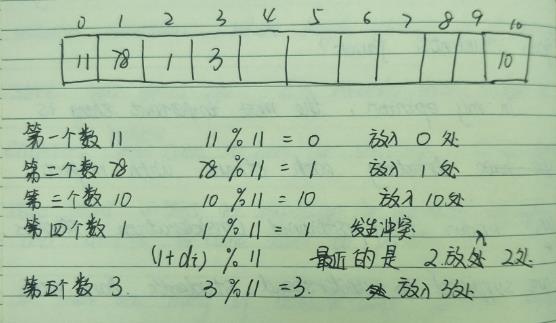 0 1 2 3 4 5 6 7 8 9 10
11 78 1 3 10
第一个数 11 11 % 11 = 0 放入 0 处
第二个数 78 78 % 11 = 1 放入 1 处
第三个数 10 10 % 11 = 10 放入 10 处
第四个数 1 1 % 11 = 1 发生冲突
(1+di) % 11 最近的是 2 放入 2处
第五个数 3. 3 % 11 = 3. 放入 3处